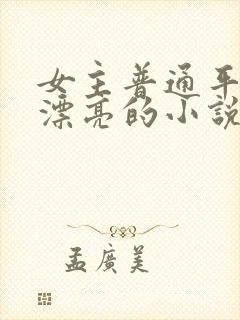 女主普通平
漂亮的小說
孟廣美